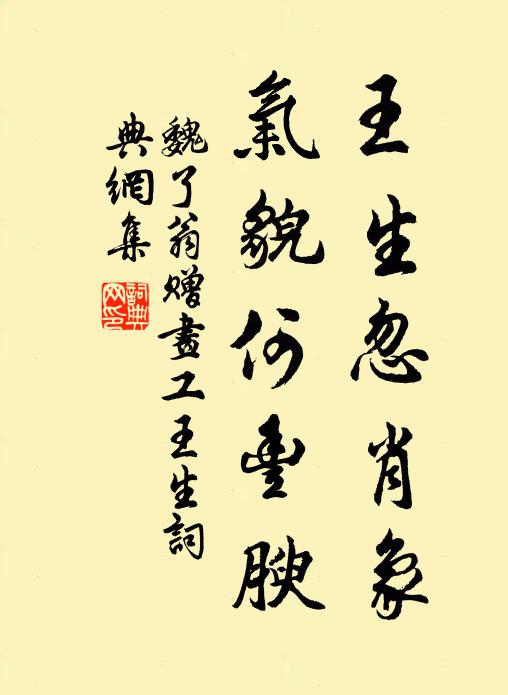 王生忽肖象
氣貌何豐腴
魏了翁贈畫工王生詞
典網集
詞典网印